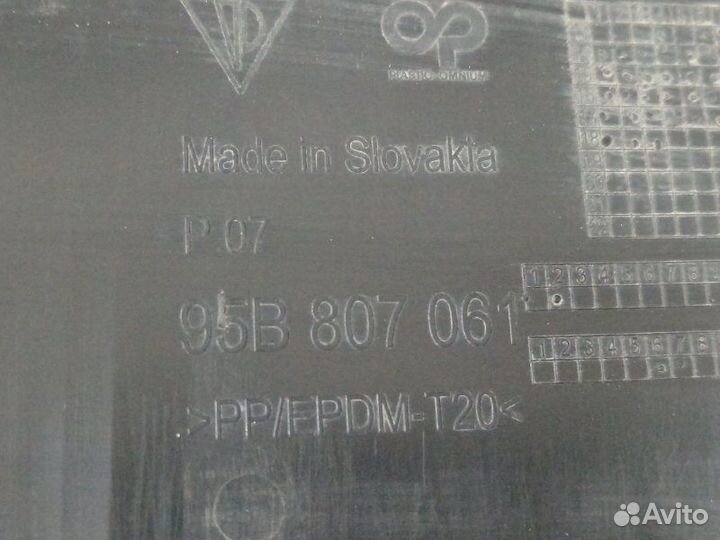 PLASTIC OMNIUM
Made in Slovakia
P 07
95B 807 061
1 2 3 4 5 6 7 8
1 2 3 4 5 6 7 8
>PP/EPDM-T20<
Avito